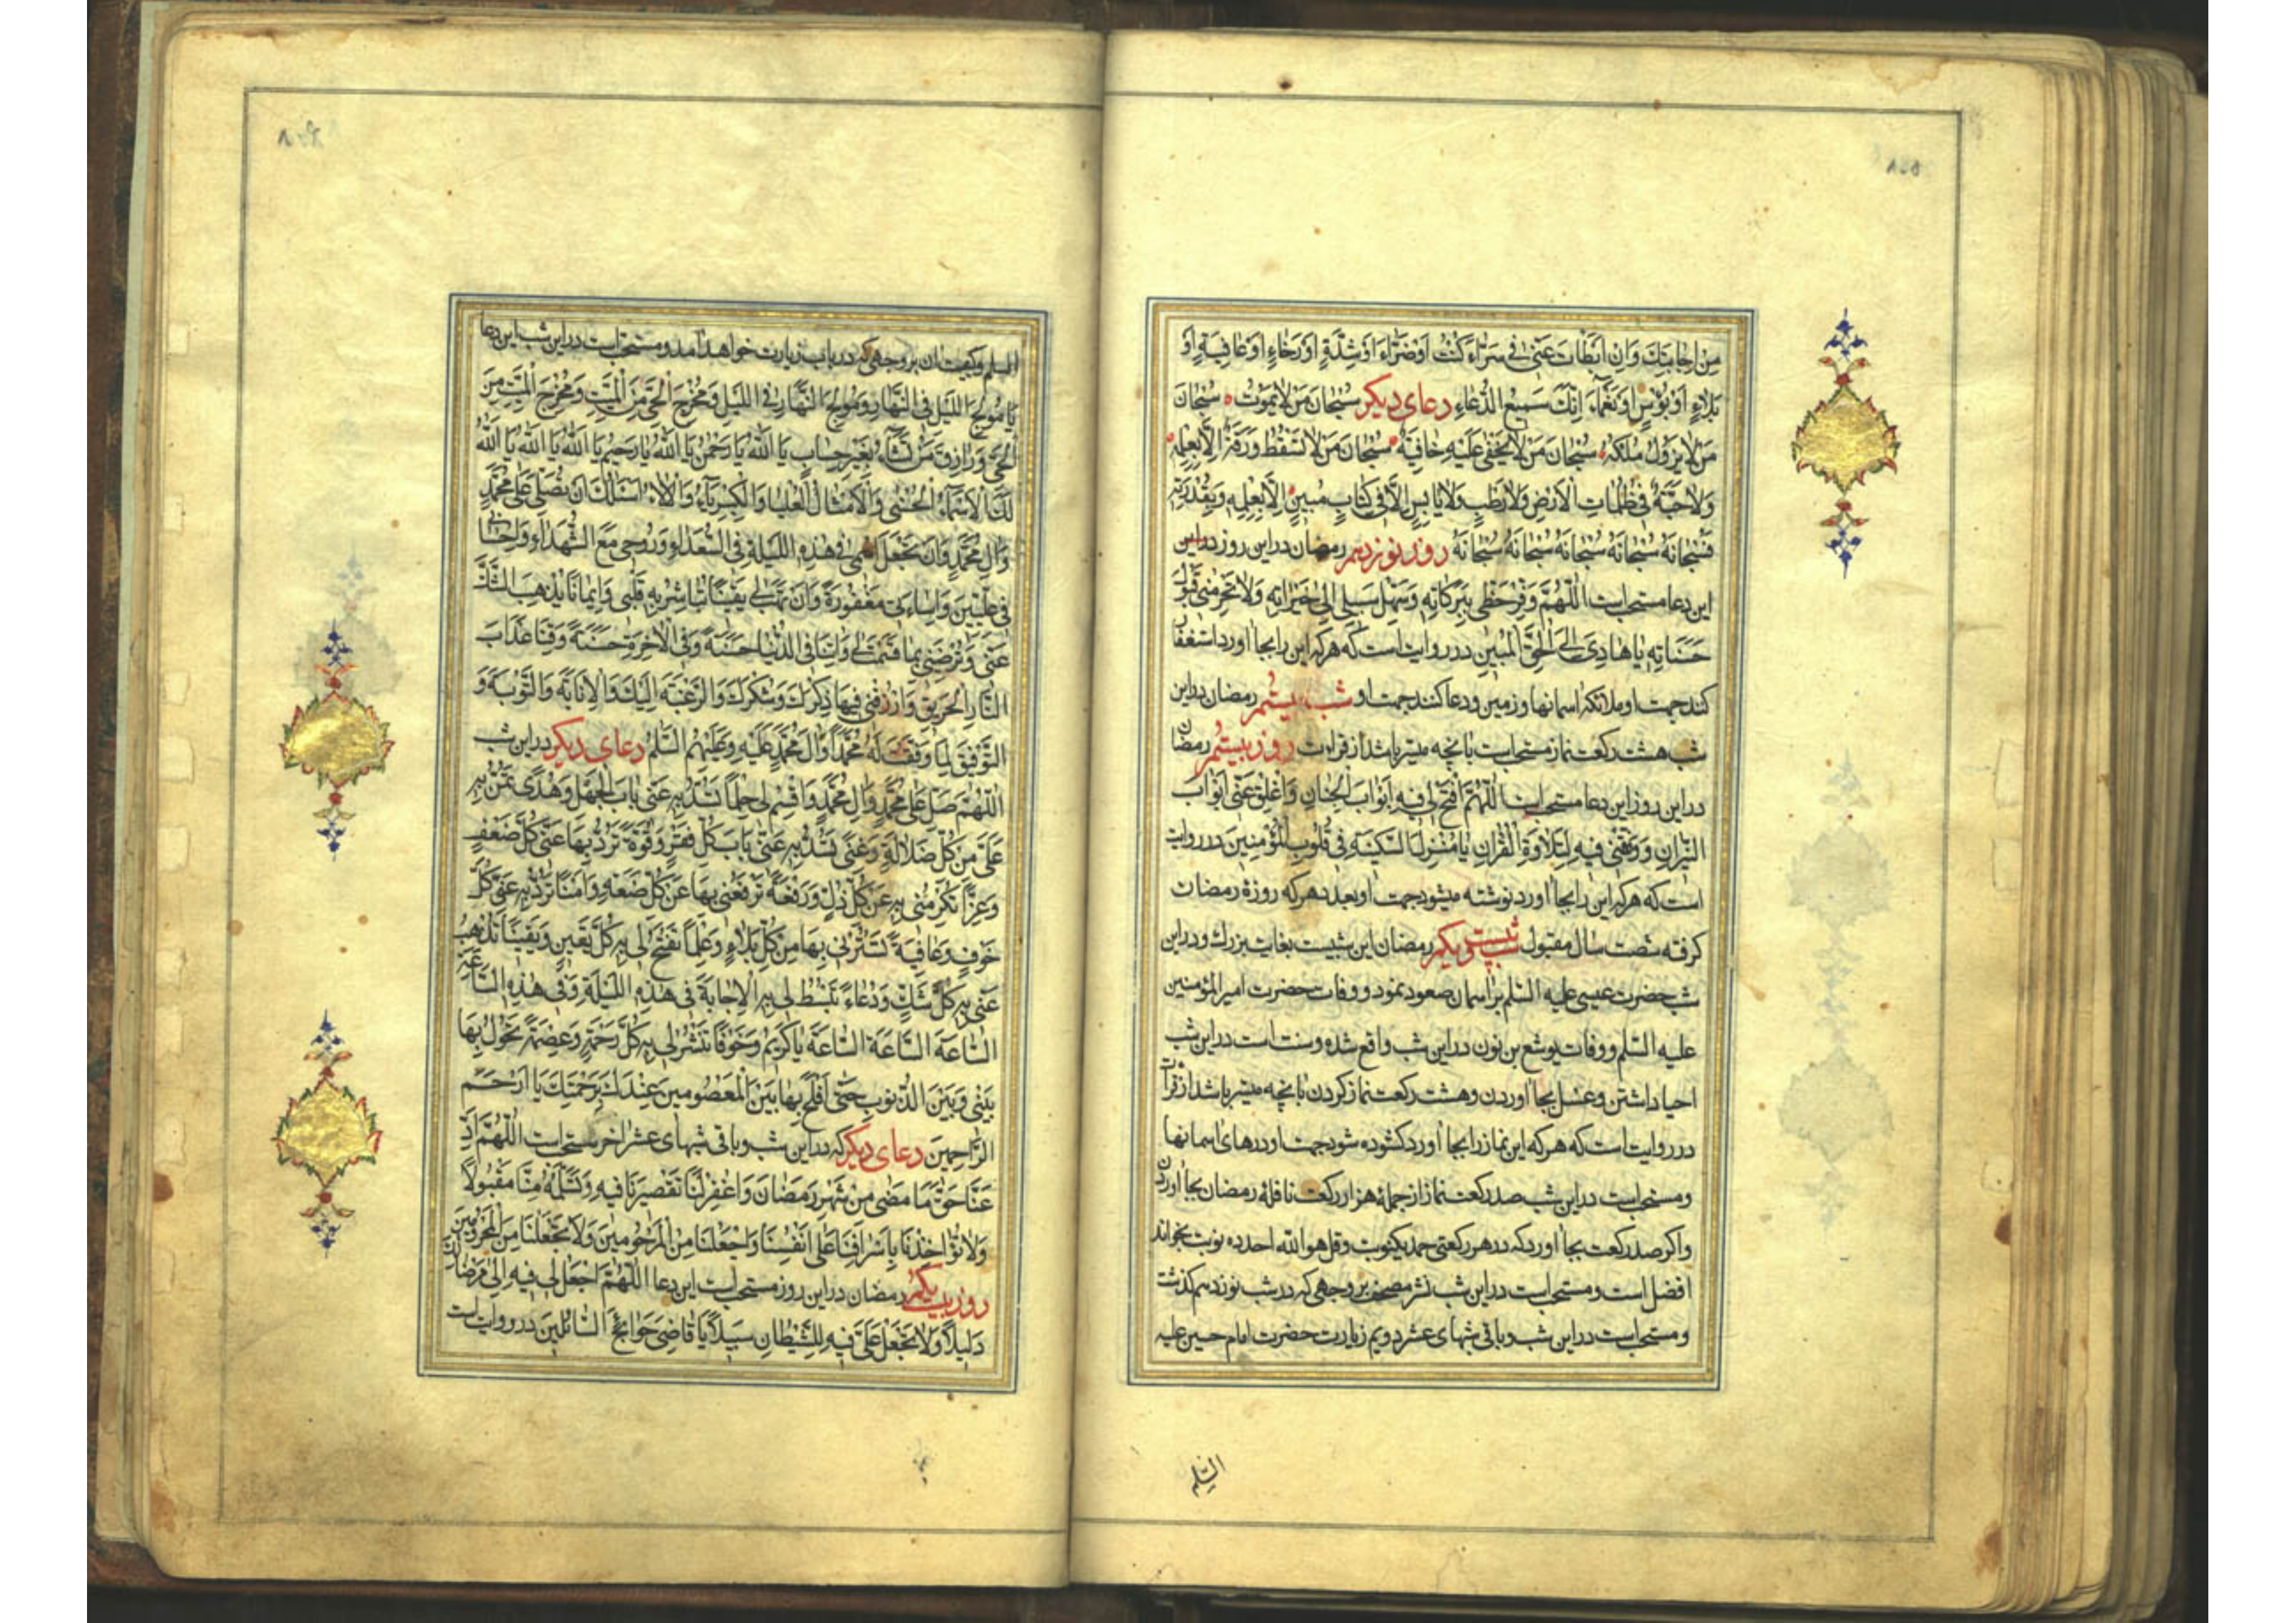 مِنْ اِجٰابَتِكَ وَاِنْ اَبْطَاْتَ عَنّى فى سَرّٰاءَ كُنْتُ اَوْ ضَرّٰاءَ اَوْ شِدَّةٍ اَوْ رَخٰاءٍ اَوْ عٰافِيَةٍ اَوْ
بَلٰاءٍ اَوْ بُؤْسٍ اَوْ نَعْمٰاءَ اِنَّكَ سَميعُ الدُّعٰاءِ دعای دیکر سُبْحٰانَ مَنْ لٰا يَمُوتُ سُبْحٰانَ
مَنْ لٰا يَزُولُ مُلْكُهُ سُبْحٰانَ مَنْ لٰا يَخْفٰى عَلَيْهِ خٰافِيَةٌ سُبْحٰانَ مَنْ لٰا تَسْقُطُ وَرَقَةٌ اِلّٰا بِعِلْمِهِ
وَلٰا حَبَّةٌ فى ظُلُمٰاتِ الْاَرْضِ وَلٰا رَطْبٍ وَلٰا يٰابِسٍ اِلّٰا فى كِتٰابٍ مُبينٍ اِلّٰا بِعِلْمِهِ وَبِقُدْرَتِهِ
فَسُبْحٰانَهُ سُبْحٰانَهُ سُبْحٰانَهُ سُبْحٰانَهُ سُبْحٰانَهُ روز نوزدهم رمضان دراین روز
این دعا مستحب است اَللّٰهُمَّ وَفِّرْ حَظّى بِبَرَكٰاتِهِ وَسَهِّلْ سَبيلى اِلٰى خَيْرٰاتِهِ وَلٰا تَحْرِمْنى قَبُولَ
حَسَنٰاتِهِ يٰا هٰادِىَ اِلَى الْحَقِّ الْمُبينِ در روایت است که هر که این را بجا اورد استغفار
کنند جهت او ملائکه اسمانها و زمین و دعا کنند جهت او شب بیستم رمضان دراین
شب هشت رکعت نماز مستحب است بانچه میسر باشد از قراءت روز بیستم رمضان
دراین روز این دعا مستحب است اَللّٰهُمَّ افْتَحْ لى فيهِ اَبْوٰابَ الْجِنٰانِ وَاَغْلِقْ عَنّى اَبْوٰابَ
النّيرٰانِ وَوَفِّقْنى فيهِ لِتِلٰاوَةِ الْقُرْاٰنِ يٰا مُنْزِلَ السَّكينَةِ فى قُلُوبِ الْمُؤْمِنينَ در روایت
است که هر که این را بجا اورد نوشته میشود جهت او بعدد هر که روزهٔ رمضان
کرفته شصت سال مقبول شب بیست و یکم رمضان این شبیست بغایت بزرک و دراین
شب حضرت عیسی علیه السلم بر اسمان صعود نمود و وفات حضرت امیر المؤمنین
علیه السلم و وفات یوشع بن نون دراین شب واقع شده و سنت است دراین شب
احیا داشتن و غسل بجا اوردن و هشت رکعت نماز کردن بانچه میسر باشد از قرآت
در روایت است که هر که این نماز را بجا اورد کشوده شود جهت او درهای اسمانها
و مستحب است دراین شب صد رکعت نماز از جملهٔ هزار رکعت نافلهٔ رمضان بجا اوردن
و اکر صد رکعت بجا اورد که در هر رکعتی حمد یکنوبت و قل هو الله احد ده نوبت بخواند
افضل است و مستحب است دراین شب نشر مصحف بر وجهی که در شب نوزدهم کذشت
و مستحب است دراین شب و باقی شبهای عشر دویم زیارت حضرت امام حسین علیه
السلم
السلم و کیفیت ان بر وجهی که در باب زیارت خواهد امد و مستحب است دراین شب این دعا
يٰا مُولِجَ اللَّيْلِ فِى النَّهٰارِ وَمُولِجَ النَّهٰارِ فِى اللَّيْلِ وَمُخْرِجَ الْحَىِّ مِنَ الْمَيِّتِ وَمُخْرِجَ الْمَيِّتِ مِنَ
الْحَىِّ وَرٰازِقَ مَنْ تَشٰاءُ بِغَيْرِ حِسٰابٍ يٰا اَللّٰهُ يٰا رَحْمٰنُ يٰا اَللّٰهُ يٰا رَحيمُ يٰا اَللّٰهُ يٰا اَللّٰهُ يٰا اَللّٰهُ
لَكَ الْاَسْمٰاءُ الْحُسْنٰى وَالْاَمْثٰالُ الْعُلْيٰا وَالْكِبْرِيٰاءُ وَالْاٰلٰاءُ اَسْئَلُكَ اَنْ تُصَلِّىَ عَلٰى مُحَمَّدٍ
وَاٰلِ مُحَمَّدٍ وَاَنْ تَجْعَلَ اسْمى فى هٰذِهِ اللَّيْلَةِ فِى السُّعَدٰاءِ وَرُوحى مَعَ الشُّهَدٰاءِ وَاِحْسٰانى
فى عِلِّيّينَ وَاِسٰاءَتى مَغْفُورَةً وَاَنْ تَهَبَ لى يَقينًا تُبٰاشِرُ بِهِ قَلْبى وَايمٰانًا يُذْهِبُ الشَّكَّ
عَنّى وَتُرْضِيَنى بِمٰا قَسَمْتَ لى وَاٰتِنٰا فِى الدُّنْيٰا حَسَنَةً وَفِى الْاٰخِرَةِ حَسَنَةً وَقِنٰا عَذٰابَ
النّٰارِ الْحَريقِ وَارْزُقْنى فيهٰا ذِكْرَكَ وَشُكْرَكَ وَالرَّغْبَةَ اِلَيْكَ وَالْاِنٰابَةَ وَالتَّوْبَةَ وَ
التَّوْفيقَ لِمٰا وَفَّقْتَ لَهُ مُحَمَّدًا وَاٰلَ مُحَمَّدٍ عَلَيْهِ وَعَلَيْهِمُ السَّلٰمُ دعای دیکر دراین شب
اَللّٰهُمَّ صَلِّ عَلٰى مُحَمَّدٍ وَاٰلِ مُحَمَّدٍ وَاقْسِمْ لى حِلْمًا تَسُدُّ بِهِ عَنّى بٰابَ الْجَهْلِ وَهُدًى تَمُنُّ بِهِ
عَلَىَّ مِنْ كُلِّ ضَلٰالَةٍ وَغِنًى تَسُدُّ بِهِ عَنّى بٰابَ كُلِّ فَقْرٍ وَقُوَّةً تَرُدُّ بِهٰا عَنّى كُلَّ ضَعْفٍ
وَعِزًّا تُكْرِمُنى بِهِ عَنْ كُلِّ ذُلٍّ وَرِفْعَةً تَرْفَعُنى بِهٰا عَنْ كُلِّ ضَعَةٍ وَاَمْنًا تَرُدُّ بِهِ عَنّى كُلَّ
خَوْفٍ وَعٰافِيَةً تَسْتُرُنى بِهٰا مِنْ كُلِّ بَلٰاءٍ وَعِلْمًا تَفْتَحُ لى بِهِ كُلَّ يَقينٍ وَيَقينًا تُذْهِبُ
عَنّى بِهِ كُلَّ شَكٍّ وَدُعٰاءً تَبْسُطُ لى بِهِ الْاِجٰابَةَ فى هٰذِهِ اللَّيْلَةِ وَفى هٰذِهِ السّٰاعَةِ
السّٰاعَةَ السّٰاعَةَ السّٰاعَةَ يٰا كَريمُ وَخَوْفًا تَنْشُرُ لى بِهِ كُلَّ رَحْمَةٍ وَعِصْمَةً تَحُولُ بِهٰا
بَيْنى وَبَيْنَ الذُّنُوبِ حَتّٰى اُفْلِحَ بِهٰا بَيْنَ الْمَعْصُومينَ عِنْدَكَ بِرَحْمَتِكَ يٰا اَرْحَمَ
الرّٰاحِمينَ دعای دیکر که دراین شب و باقی شبهای عشر اخر مستحب است اَللّٰهُمَّ اَدِّ
عَنّٰا حَقَّ مٰا مَضٰى مِنْ شَهْرِ رَمَضٰانَ وَاغْفِرْ لَنٰا تَقْصيرَنٰا فيهِ وَتَسَلَّمْهُ مِنّٰا مَقْبُولًا
وَلٰا تُؤٰاخِذْنٰا بِاِسْرٰافِنٰا عَلٰى اَنْفُسِنٰا وَاجْعَلْنٰا مِنَ الْمَرْحُومينَ وَلٰا تَجْعَلْنٰا مِنَ الْمَحْرُومينَ
روز بیست یکم رمضان دراین روز مستحب است این دعا اَللّٰهُمَّ اجْعَلْ لى فيهِ اِلٰى مَرْضٰاتِكَ
دَليلًا وَلٰا تَجْعَلْ عَلَىَّ فيهِ لِلشَّيْطٰانِ سَبيلًا يٰا قٰاضِىَ حَوٰائِجِ السّٰائِلينَ در روایت است